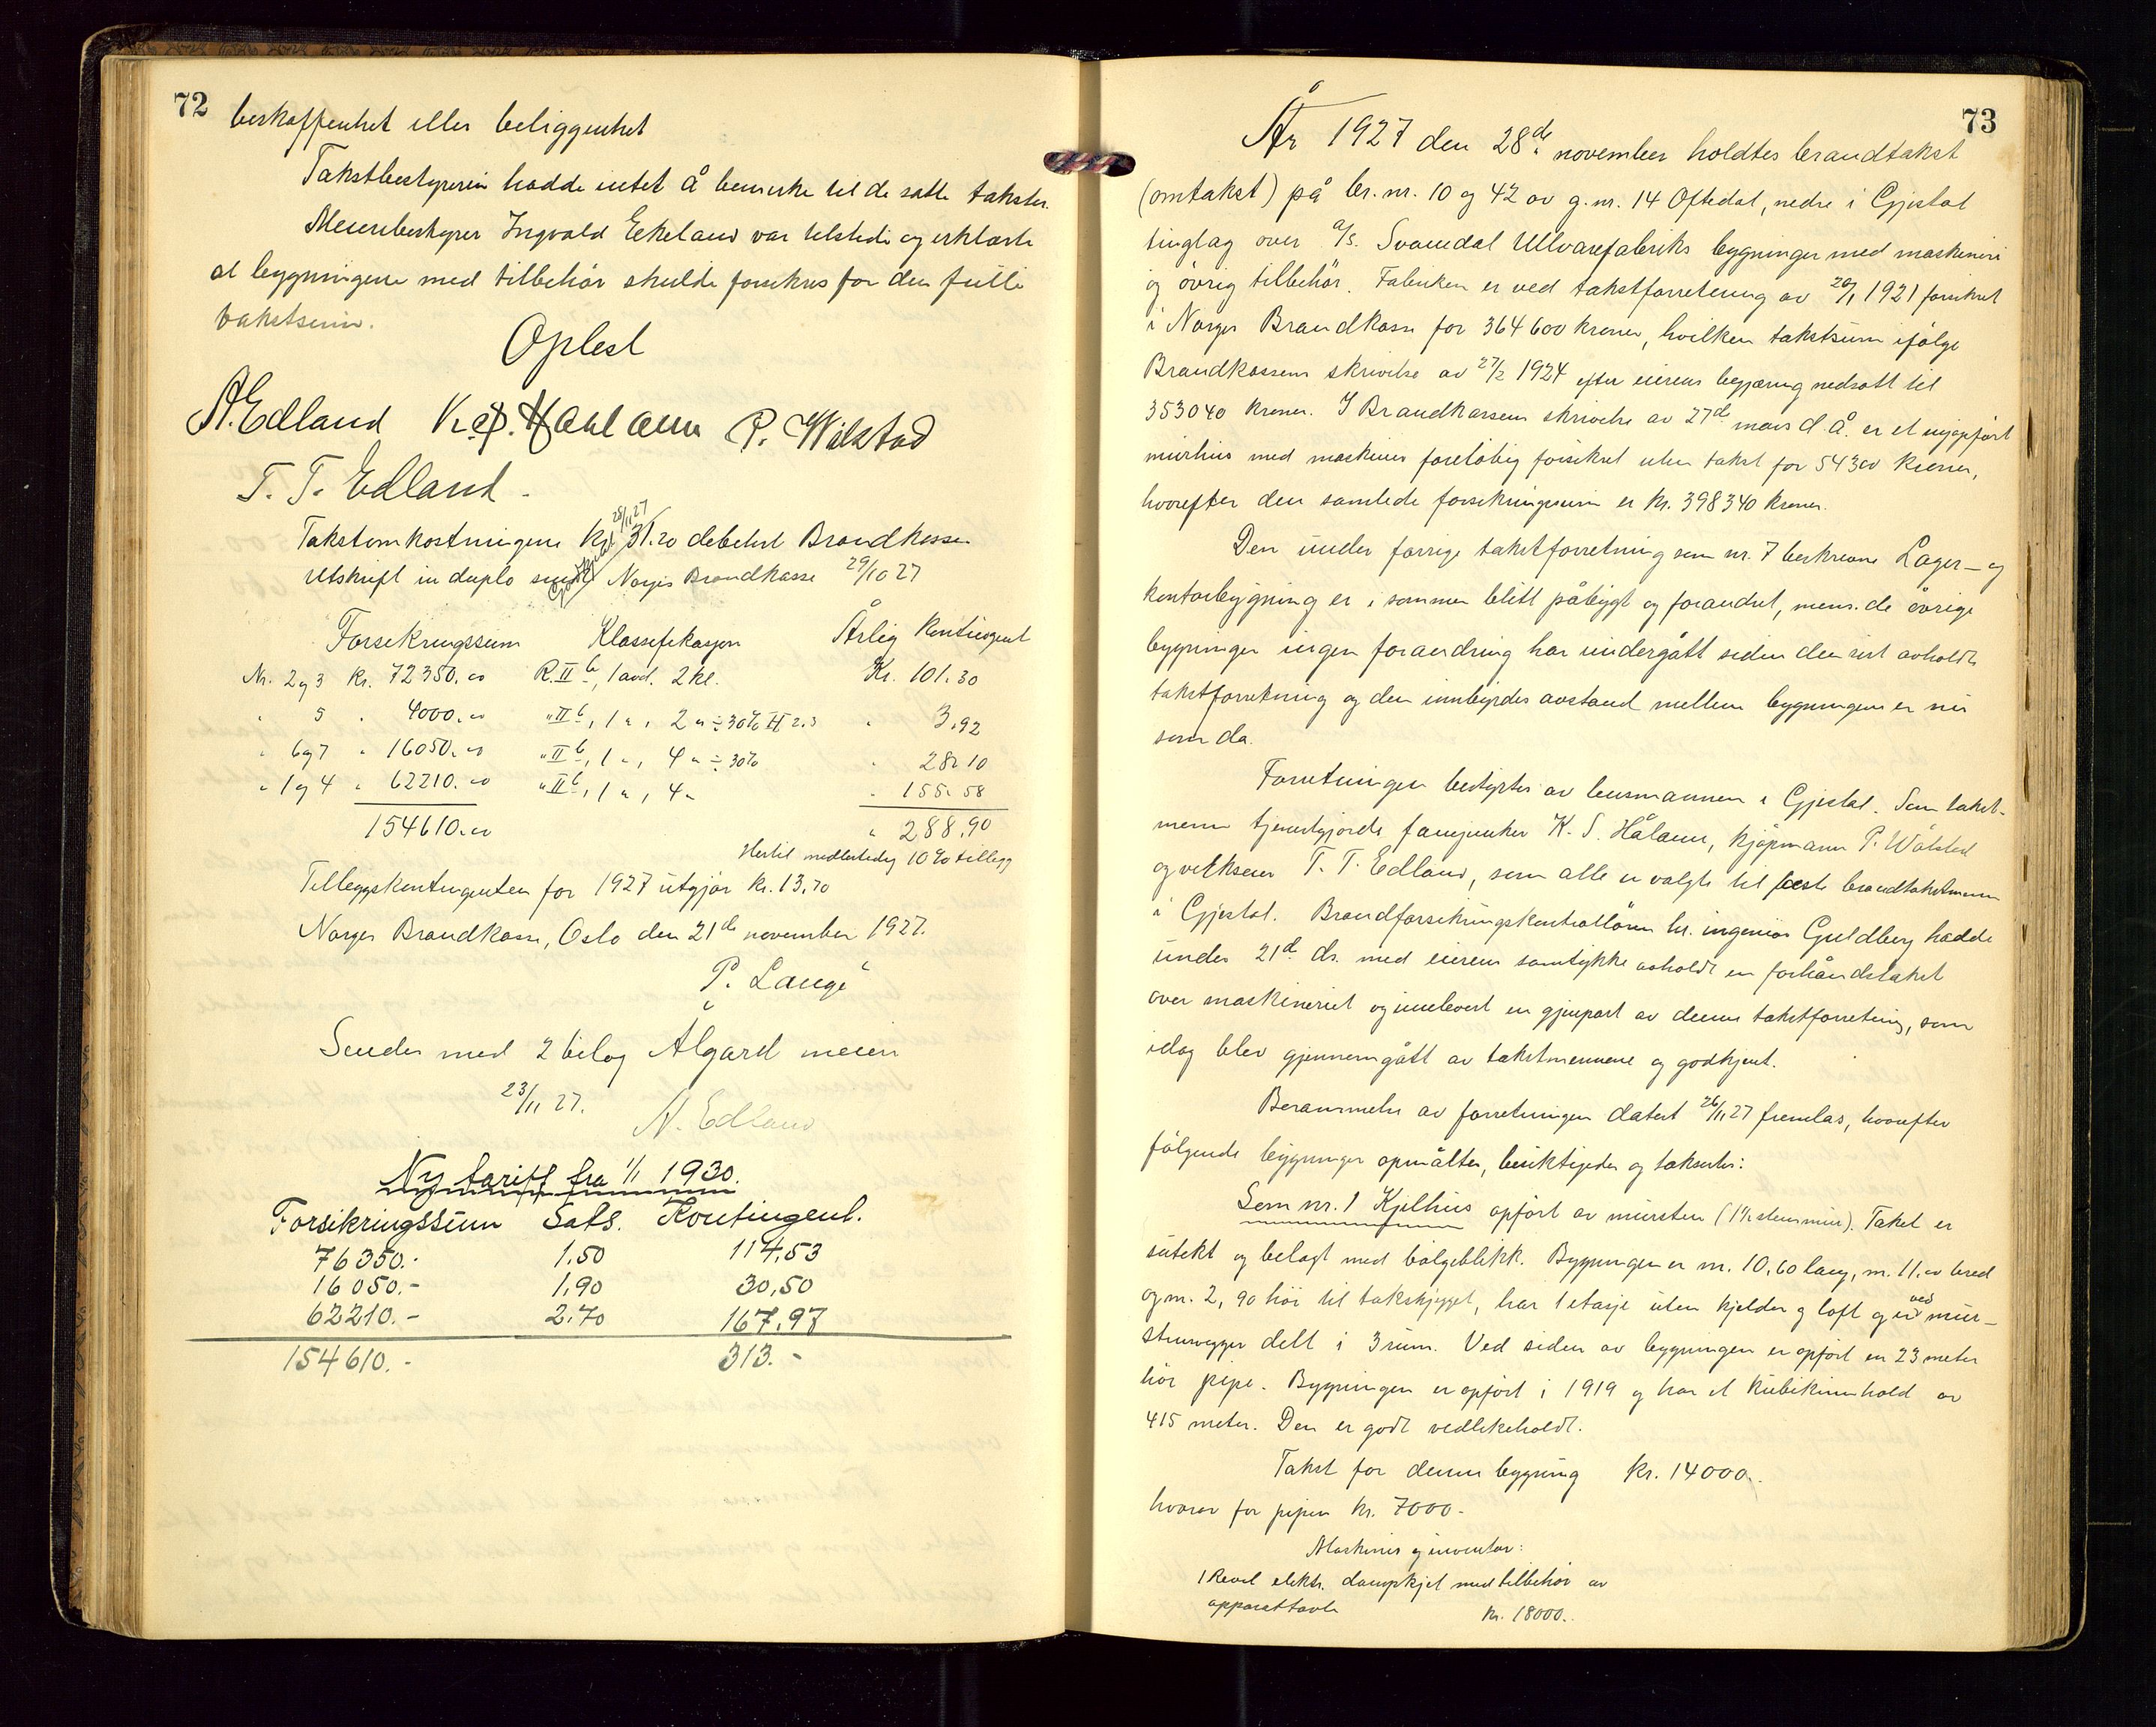 72
beskaffenhet eller beliggenhet
Takstbestyreren hadde intet å bemerke til de satte takster.
Meieribestyrer Ingvald Eikeland var tilstede og erklærte
at bygningene med tilbehør skulde forsikres for den fulle
takstsum.
Oplest
A. Edland K. S. Haaland P. Wålstad
T. T. Edland.
28/11 27
Takstomkostningene kr. 31.20 debetert Brandkassen
Utskrift in duplo sendt Norges Brandkasse 29/10 27
Forsikringssum Klassefikasjon Årlig Kontingent
Nr. 2 og 3 kr. 72350.00 R. II b, 1 avd. 2 kl. Kr. 101.30
" 5 " 4000.00 " II b, 1 ", 2 " ÷ 30% H 2.3 " 3.92
" 6 og 7 " 16050.00 " II b, 1 ", 4 " ÷ 30% " 28.10
" 1 og 4 " 62210.00 " II b, 1 ", 4 " " 155.58
154610.00 " 288.90
Hertil midlertidig 10% tillegg
Tilleggskontingenten for 1927 utgjør kr. 13.70
Norges Brandkasse, Oslo den 21de november 1927.
P. Lange
Sendes med 2 bilag Ålgård meieri
23/11 27. A. Edland
Ny tariff fra 1/1 1930.
Forsikringssum Sats. Kontingent.
76350.- 1.50 114,53
16050.- 1,90 30,50
62210.- 2.70 167,97
154610.- 313.-
73
År 1927 den 28de november holdtes brandtakst
(omtakst) på br. nr. 10 og 42 av g. nr. 14 Oftedal, nedre i Gjestal
tinglag over A/S. Svanedal Ullvarefabriks bygninger med maskineri
og øvrig tilbehør. Fabriken er ved takstforretning av 20/1 1921 forsikret
i Norges Brandkasse for 364600 kroner, hvilken takstsum ifølge
Brandkassens skrivelse av 27/2 1924 efter eierens begjæring nedsatt til
353040 kroner. I Brandkassens skrivelse av 27de mars d. å. er et nyopført
murhus med maskiner foreløbig forsikret uten takst for 54300 kroner,
hvorefter den samlede forsikringssum er kr. 398340 kroner.
Den under forrige takstforretning som nr. 7 beskrevne Lager- og
kontorbygning er i sommer blitt påbygt og forandret, mens de øvrige
bygninger ingen forandring har undergått siden den sist avholdte
takstforretning og den innbyrdes avstand mellem bygningene er nu
som da.
Forretningen bestyrtes av lensmannen i Gjestal. Som takst-
menn tjenestgjorde fanejunker K. S. Håland, kjøpmann P. Wålstad
og verkseier T. T. Edland, som alle er valgte til faste brandtakstmenn
i Gjestal. Brandforsikringskontrolløren hr. ingeniør Guldberg hadde
under 21de ds. med eierens samtykke avholdt en forhåndstakst
over maskineriet og innlevert en gjenpart av denne takstforretning, som
idag blev gjennemgått av takstmennene og godkjent.
Berammelse av forretningen datert 26/11 27 fremlas, hvorefter
følgende bygninger opmåltes, besiktigedes og taksertes:
Som nr. 1 Kjelhus opført av mursten (1½ stens mur). Taket er
sutekt og belagt med bølgeblikk. Bygningen er m. 10,60 lang, m. 11,00 bred
og m. 2,90 høi til takskjegget, har 1 etasje uten kjelder og loft og er ved mur-
stensvegger delt i 3 rum. Ved siden av bygningen er opført en 23 meter
høi pipe. Bygningen er opført i 1919 og har et kubikinnhold av
415 meter. Den er godt vedlikeholdt.
Takst for denne bygning kr. 14000.-
hvorav for pipen kr. 7000.-
Maskiner og inventar:
1 Revel elektr. dampkjel med tilbehør av
apparattavle kr. 18000.-